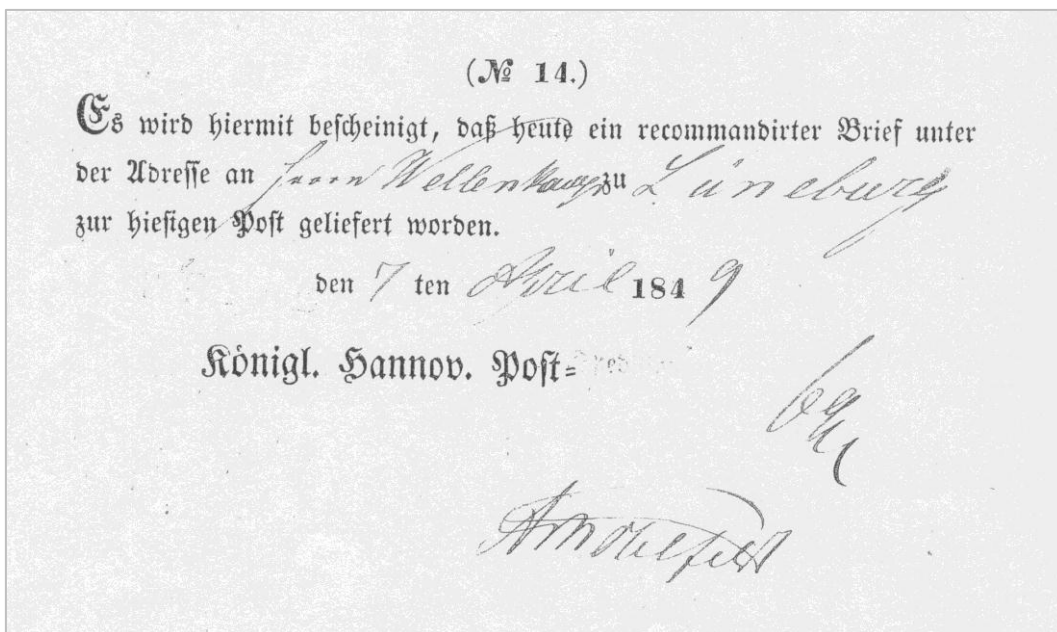 (№ 14.)
Es wird hiermit bescheinigt, daß heute ein recommandirter Brief unter
der Adresse an Herrn Wellenkamp zu Lüneburg
zur hiesigen Post geliefert worden.
den 7 ten April 1849
Königl. Hannov. Post=